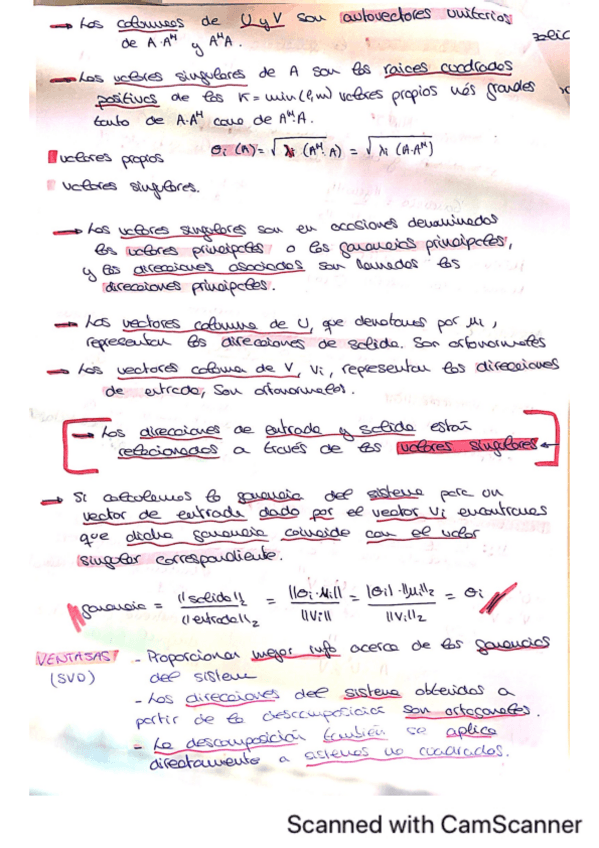 → Las columnas de U y V son autovectores unitarios
de A·Aᴴ y AᴴA.
→ Los valores singulares de A son las raices cuadradas
positivas de los K = min(l,m) valores propios más grandes
tanto de A·Aᴴ como de AᴴA.
valores propios
σi (A) = √λi (Aᴴ·A) = √λi (A·Aᴴ)
valores singulares.
→ Los valores singulares son en ocasiones denominados
los valores principales o las ganancias principales,
y las direcciones asociadas son llamadas las
direcciones principales.
→ Los vectores columna de U, que denotamos por μi,
representan las direcciones de salida. Son ortonormales
→ Los vectores columna de V, Vi, representan las direcciones
de entrada, Son ortonormales.
→ Las direcciones de entrada y salida están
relacionadas a través de los valores singulares ←
→ Si calculamos la ganancia del sistema para un
vector de entrada dado por el vector Vi encontramos
que dicha ganancia coincide con el valor
singular correspondiente.
ganancia = ||salida||₂ / ||entrada||₂ = ||σi·μi|| / ||Vi|| = |σi|·||μi||₂ / ||Vi||₂ = σi
VENTAJAS - Proporcionan mejor info acerca de las ganancias
(SVD) del sistema
- Las direcciones del sistema obtenidas a
partir de la descomposición son ortogonales.
- La descomposición también se aplica
directamente a sistemas no cuadrados.
Scanned with CamScanner